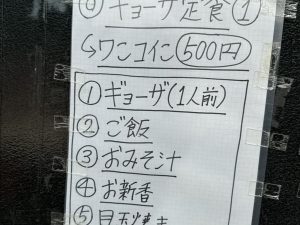 ⓪ ギョーザ定食①
↳ワンコイン(500円)
①ギョーザ(1人前)
②ご飯
③おみそ汁
④お新香
⑤目玉焼き